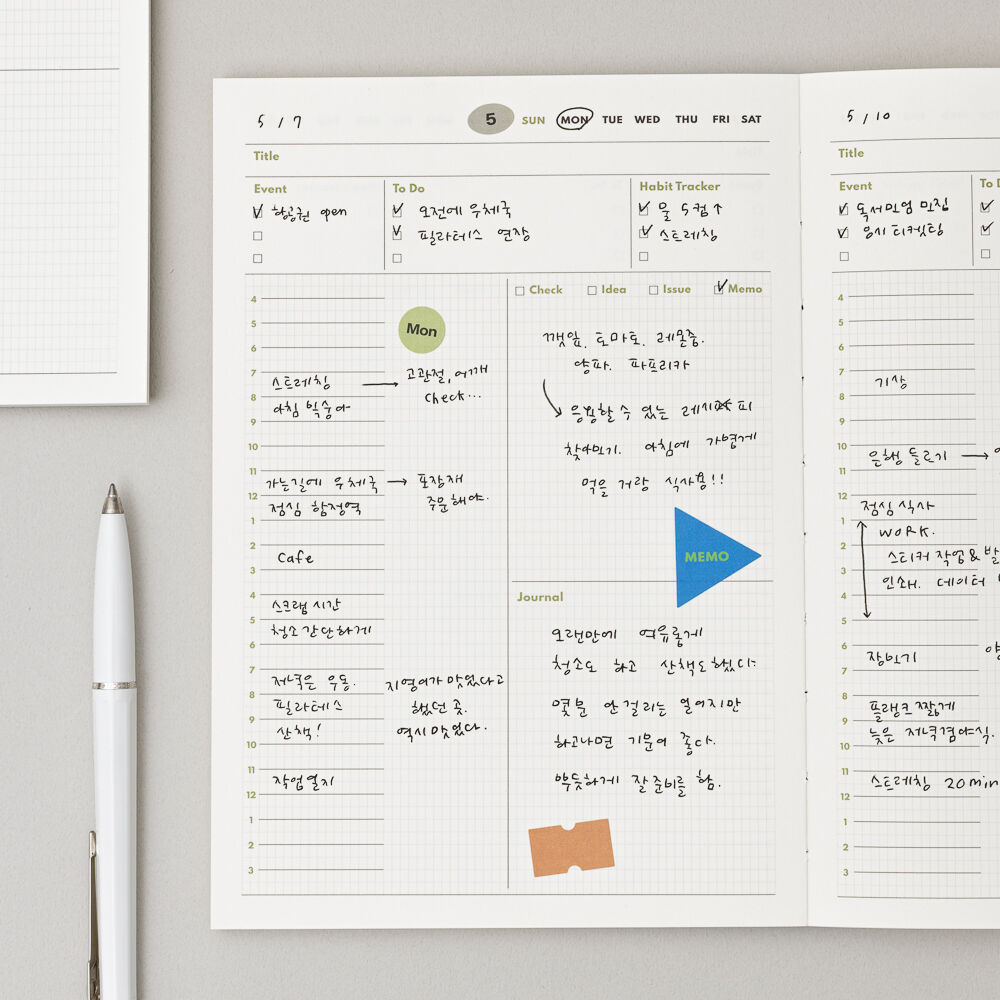 5 / 7
5 SUN MON TUE WED THU FRI SAT
Title
Event
항공권 open
To Do
오전에 우체국
필라테스 연장
Habit Tracker
물 5컵 ↑
스트레칭
4
5
6
7
스트레칭 → 고관절, 어깨
check...
8
아침
9
10
11
가는길에 우체국 → 포장재
주문해야.
12
점심 함정역
1
2
Cafe
3
4
스크랩 시간
5
청소 간단하게
6
7
저녁은 우동. 지영이가 맛있었다고
했던 곳.
역시 맛있었다.
8
필라테스
9
산책!
10
11
작업일지
12
1
2
3
Mon
Check Idea Issue Memo
깻잎, 토마토, 레몬즙.
양파. 파프리카
응용할 수 있는 레시피
찾아보기. 아침에 가볍게
먹을 거랑 식사용!!
MEMO
Journal
오랜만에 여유롭게
청소도 하고 산책도 했다.
몇분 안 걸리는 일이지만
하고나면 기분이 좋다.
뿌듯하게 잘 준비를 함.
5 / 10
Title
Event
독서모임 모집
응시 티켓팅
To D
4
5
6
7
기상
8
9
10
은행 들르기 →
11
12
점심 식사
1
WORK.
2
스티커 작업 & 발
3
인쇄. 데이터
4
5
6
장보기
7
8
플랭크 짧게
9
늦은 저녁겸 야식.
10
11
스트레칭 20min
12
1
2
3